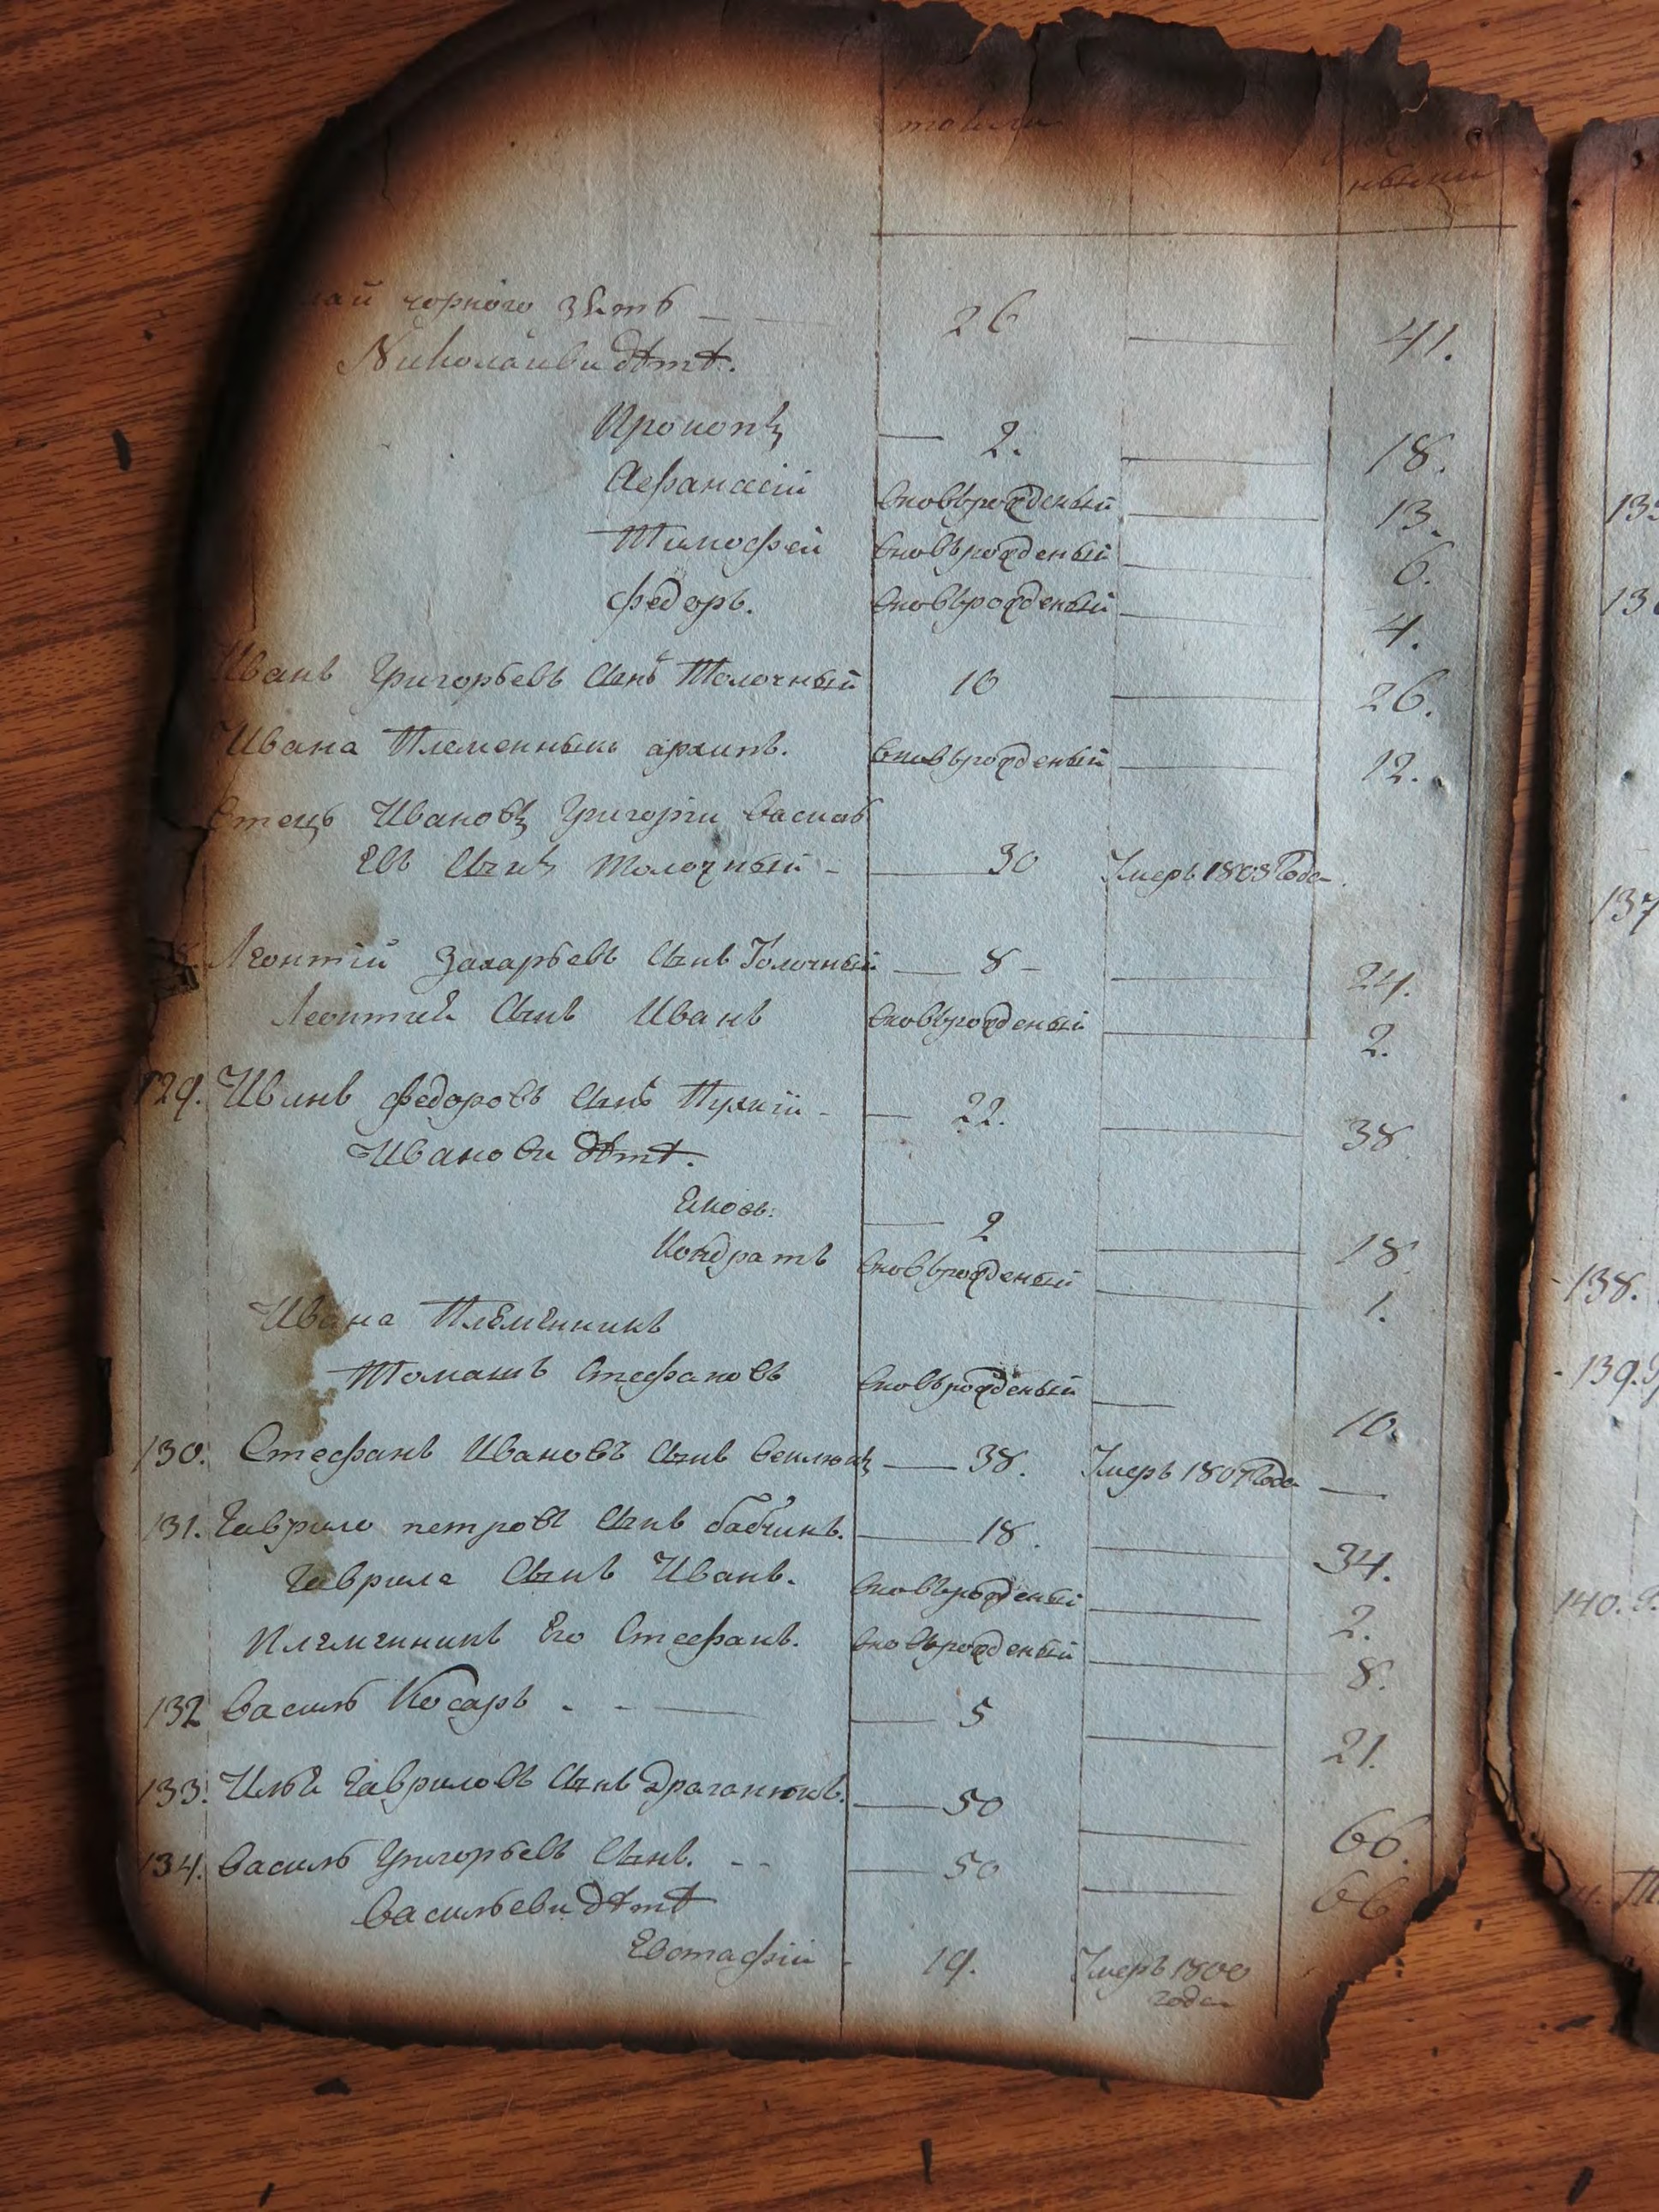 чорного зять — 26 — 41.
Николаеви дѣтѣ.
Прокопъ — 2. — 18.
Афанасій вновьрожденый — 13.
Тимофей вновьрожденый — 6.
Федоръ. вновьрожденый — 4.
Иванъ Григорьевъ сынъ Толочный 10 — 26.
Ивана Племенныкъ архипъ. вновьрожденый — 12.
Отецъ Ивановъ Григорій василь
евъ сынъ толочный - — 30 Умеръ 1808 Года.
Леонтій Захарьевъ сынъ Толочный — 8 - — 24.
Леонтия сынъ Иванъ вновьрожденый — 2.
129. Иванъ Федоровъ сынъ - — 22. — 38
Иванови дѣтѣ.
Яковъ. — 2 — 18.
Кондратъ вновьрожденый — 1.
Ивана Племенникъ
Томашъ Стефановъ вновьрожденый — 10.
130. Стефанъ Ивановъ сынъ — 38. Умеръ 1807 Года —
131. Гаврило петровъ сынъ бабчинъ. — 18. — 34.
Гаврила сынъ Иванъ. вновьрожденый — 2.
Племенникъ Его Стефанъ. вновьрожденый — 8.
132 василь Косаръ - - — 5 — 21.
133. Илья Гавриловъ сынъ драганюкъ. — 50 — 66.
134. василь Григорьевъ сынъ. - - — 50 — 66
васильеви дѣтѣ
Евстафій - 19. Умеръ 1800
года
138.
139.
140.